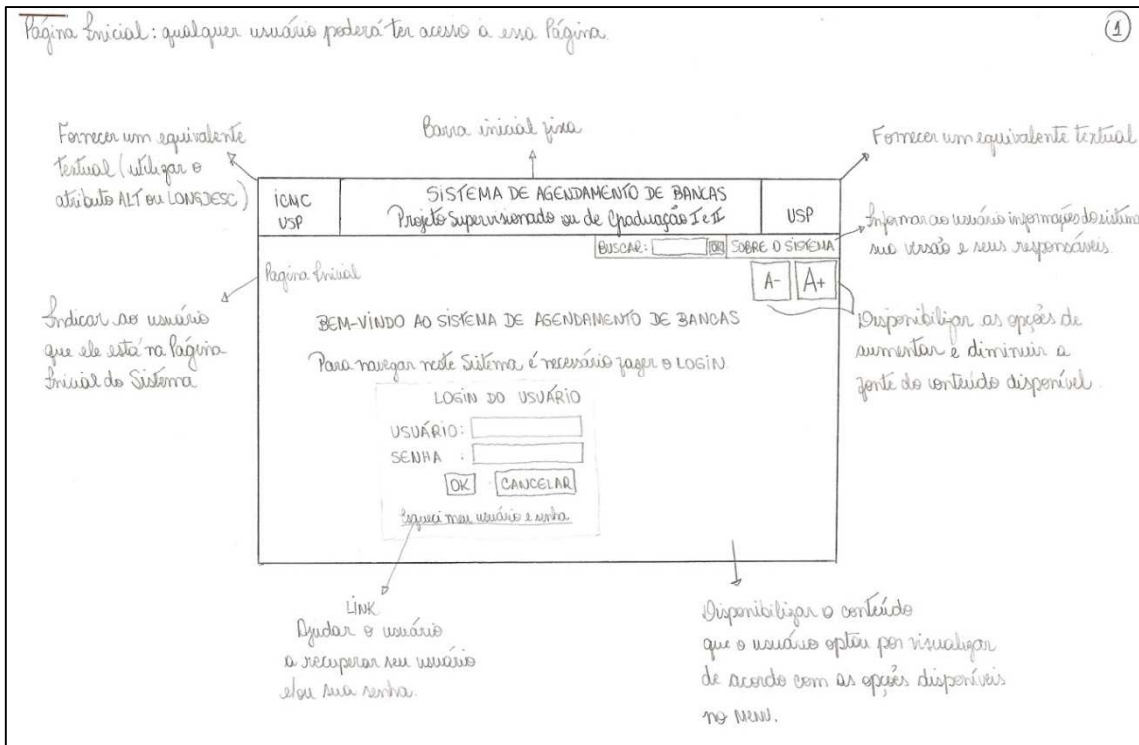 Página Inicial: qualquer usuário poderá ter acesso à essa Página.
1
Fornecer um equivalente
textual (utilizar o
atributo ALT ou LONGDESC)
Barra inicial fixa
Fornecer um equivalente textual
ICMC
USP
SISTEMA DE AGENDAMENTO DE BANCAS
Projeto Supervisionado ou de Graduação I e II
USP
BUSCAR:
OK
SOBRE O SISTEMA
Informar ao usuário informações do sistema
sua versão e seus responsáveis.
Pagina Inicial
A-
A+
Indicar ao usuário
que ele está na Página
Inicial do Sistema
BEM-VINDO AO SISTEMA DE AGENDAMENTO DE BANCAS
Disponibilizar as opções de
aumentar e diminuir a
fonte do conteúdo disponível.
Para navegar neste Sistema, é necessário fazer o LOGIN.
LOGIN DO USUÁRIO
USUÁRIO:
SENHA :
OK
CANCELAR
Esqueci meu usuário e senha
LINK
Ajudar o usuário
a recuperar seu usuário
e/ou sua senha.
Disponibilizar o conteúdo
que o usuário optou por visualizar
de acordo com as opções disponíveis
no MENU.